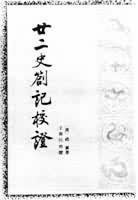 廿二史劄記校證